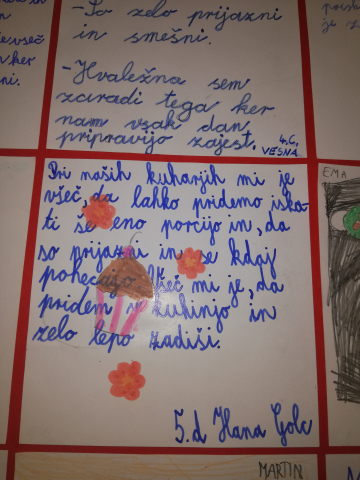 -So zelo prijazni
in smešni.
-Hvaležna sem
zaradi tega ker
nam vsak dan
pripravijo zajest.
4.C,
VESNA
Pri naših kuharjih mi je
všeč, da lahko pridemo iska
ti še eno porcijo in, da
so prijazni in se kdaj
pohecajo. Všeč mi je, da
pridem v kuhinjo in
zelo lepo zadiši.
5.d Hana Golc
EMA
MARTIN
všeč
in ker